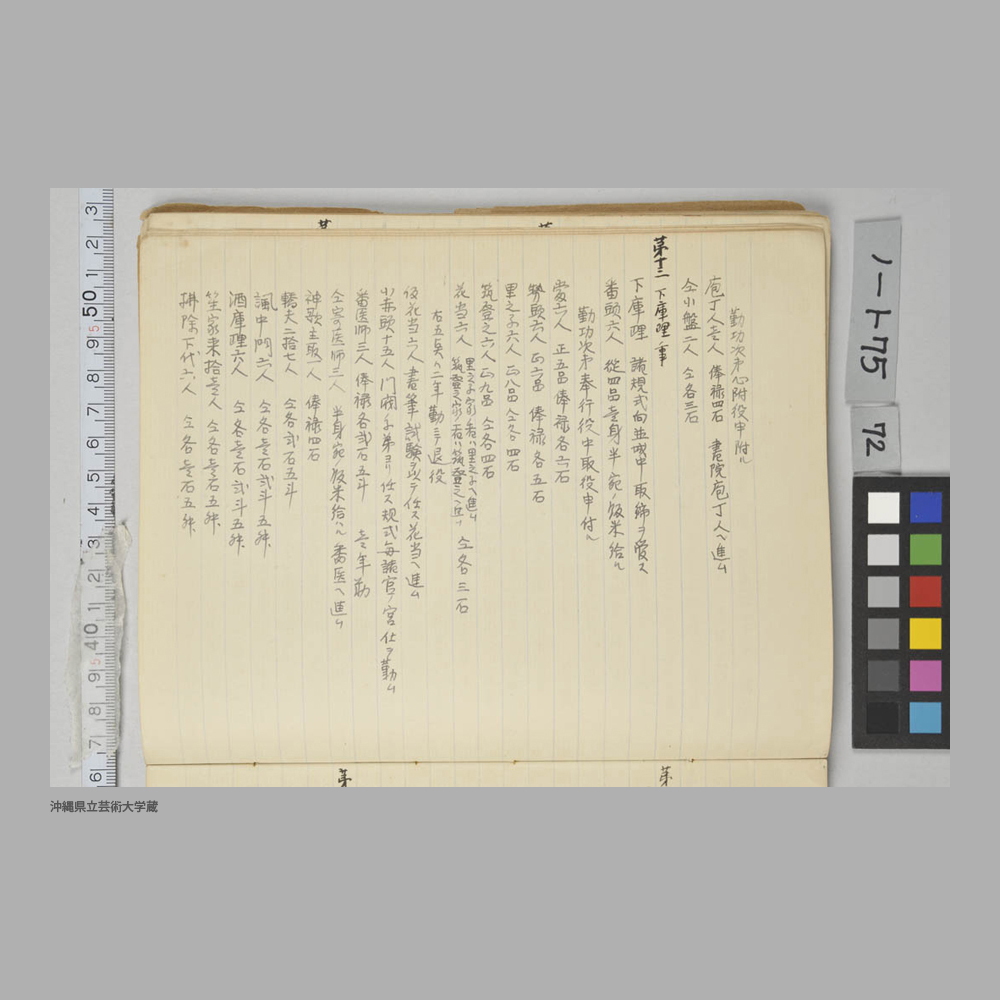 勤功次第心附役申附ル
庖丁人壱人 俸禄四石 書院庖丁人ヘ進ム
仝小盤二人 仝各三石
第十二 下庫理ノ事
下庫理 諸規式向並城中取締ヲ受ス
番頭六人 從四品壱身半宛ノ飯米給ル
勤功次第奉行役中取役申付ル
當六人 正五品俸禄各六石
勢頭六人 正六品 俸禄各五石
里之子六人 正八品仝各四石
筑登之六人 正九品 仝各四石
花当六人 里之子家ノ者ハ里之子ヘ進ム 筑登之家ノ者ハ筑登之ヘ進ム 仝各三石
右五員ハ二年勤ニテ退役
仮花当六人 書筆試験ヲ以テ仕ス花当ヘ進ム
小赤頭十五人 門閥子弟ヨリ仕ス規式毎諸官ノ宮仕ヲ勤ム
番医師三人 俸禄各弐石五斗 壱年勤
仝寄医師三人 半身宛飯米給ハル番医ヘ進ム
神歌主取一人 俸禄四石
轎夫二拾七人 仝各弐石五斗
諷中門六人 仝各壱石弐斗五舛
酒庫理六人 仝各壱石弐斗五舛
笙家来拾壱人 仝各壱石五舛
掃除下代六人 仝各壱石五舛
第
第
ノート75
72
沖縄県立芸術大学蔵